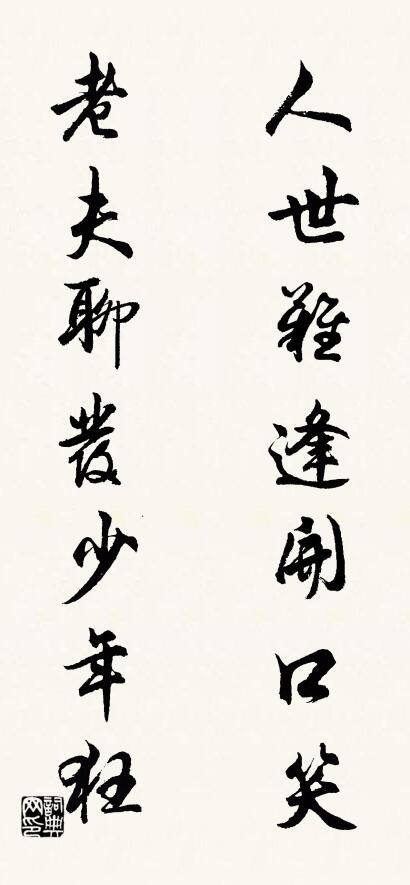 人世難逢開口笑
老夫聊發少年狂
詞典网印